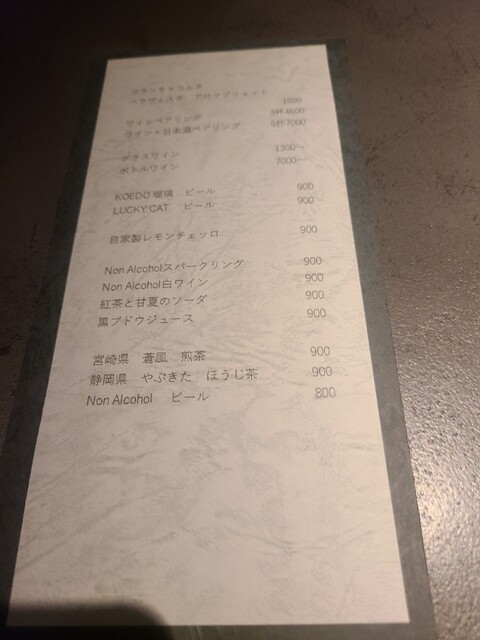 フランチャコルタ
ベラヴィスタ アルマブリュット 1900
ワインペアリング 3杯4500
ワイン+日本酒ペアリング 5杯7000
グラスワイン 1300〜
ボトルワイン 7000〜
KOEDO 瑠璃 ビール 900
LUCKY CAT ビール 900
自家製レモンチェッロ 900
Non Alcoholスパークリング 900
Non Alcohol白ワイン 900
紅茶と甘夏のソーダ 900
黒ブドウジュース 900
宮崎県 蒼風 煎茶 900
静岡県 やぶきた ほうじ茶 900
Non Alcohol ビール 800